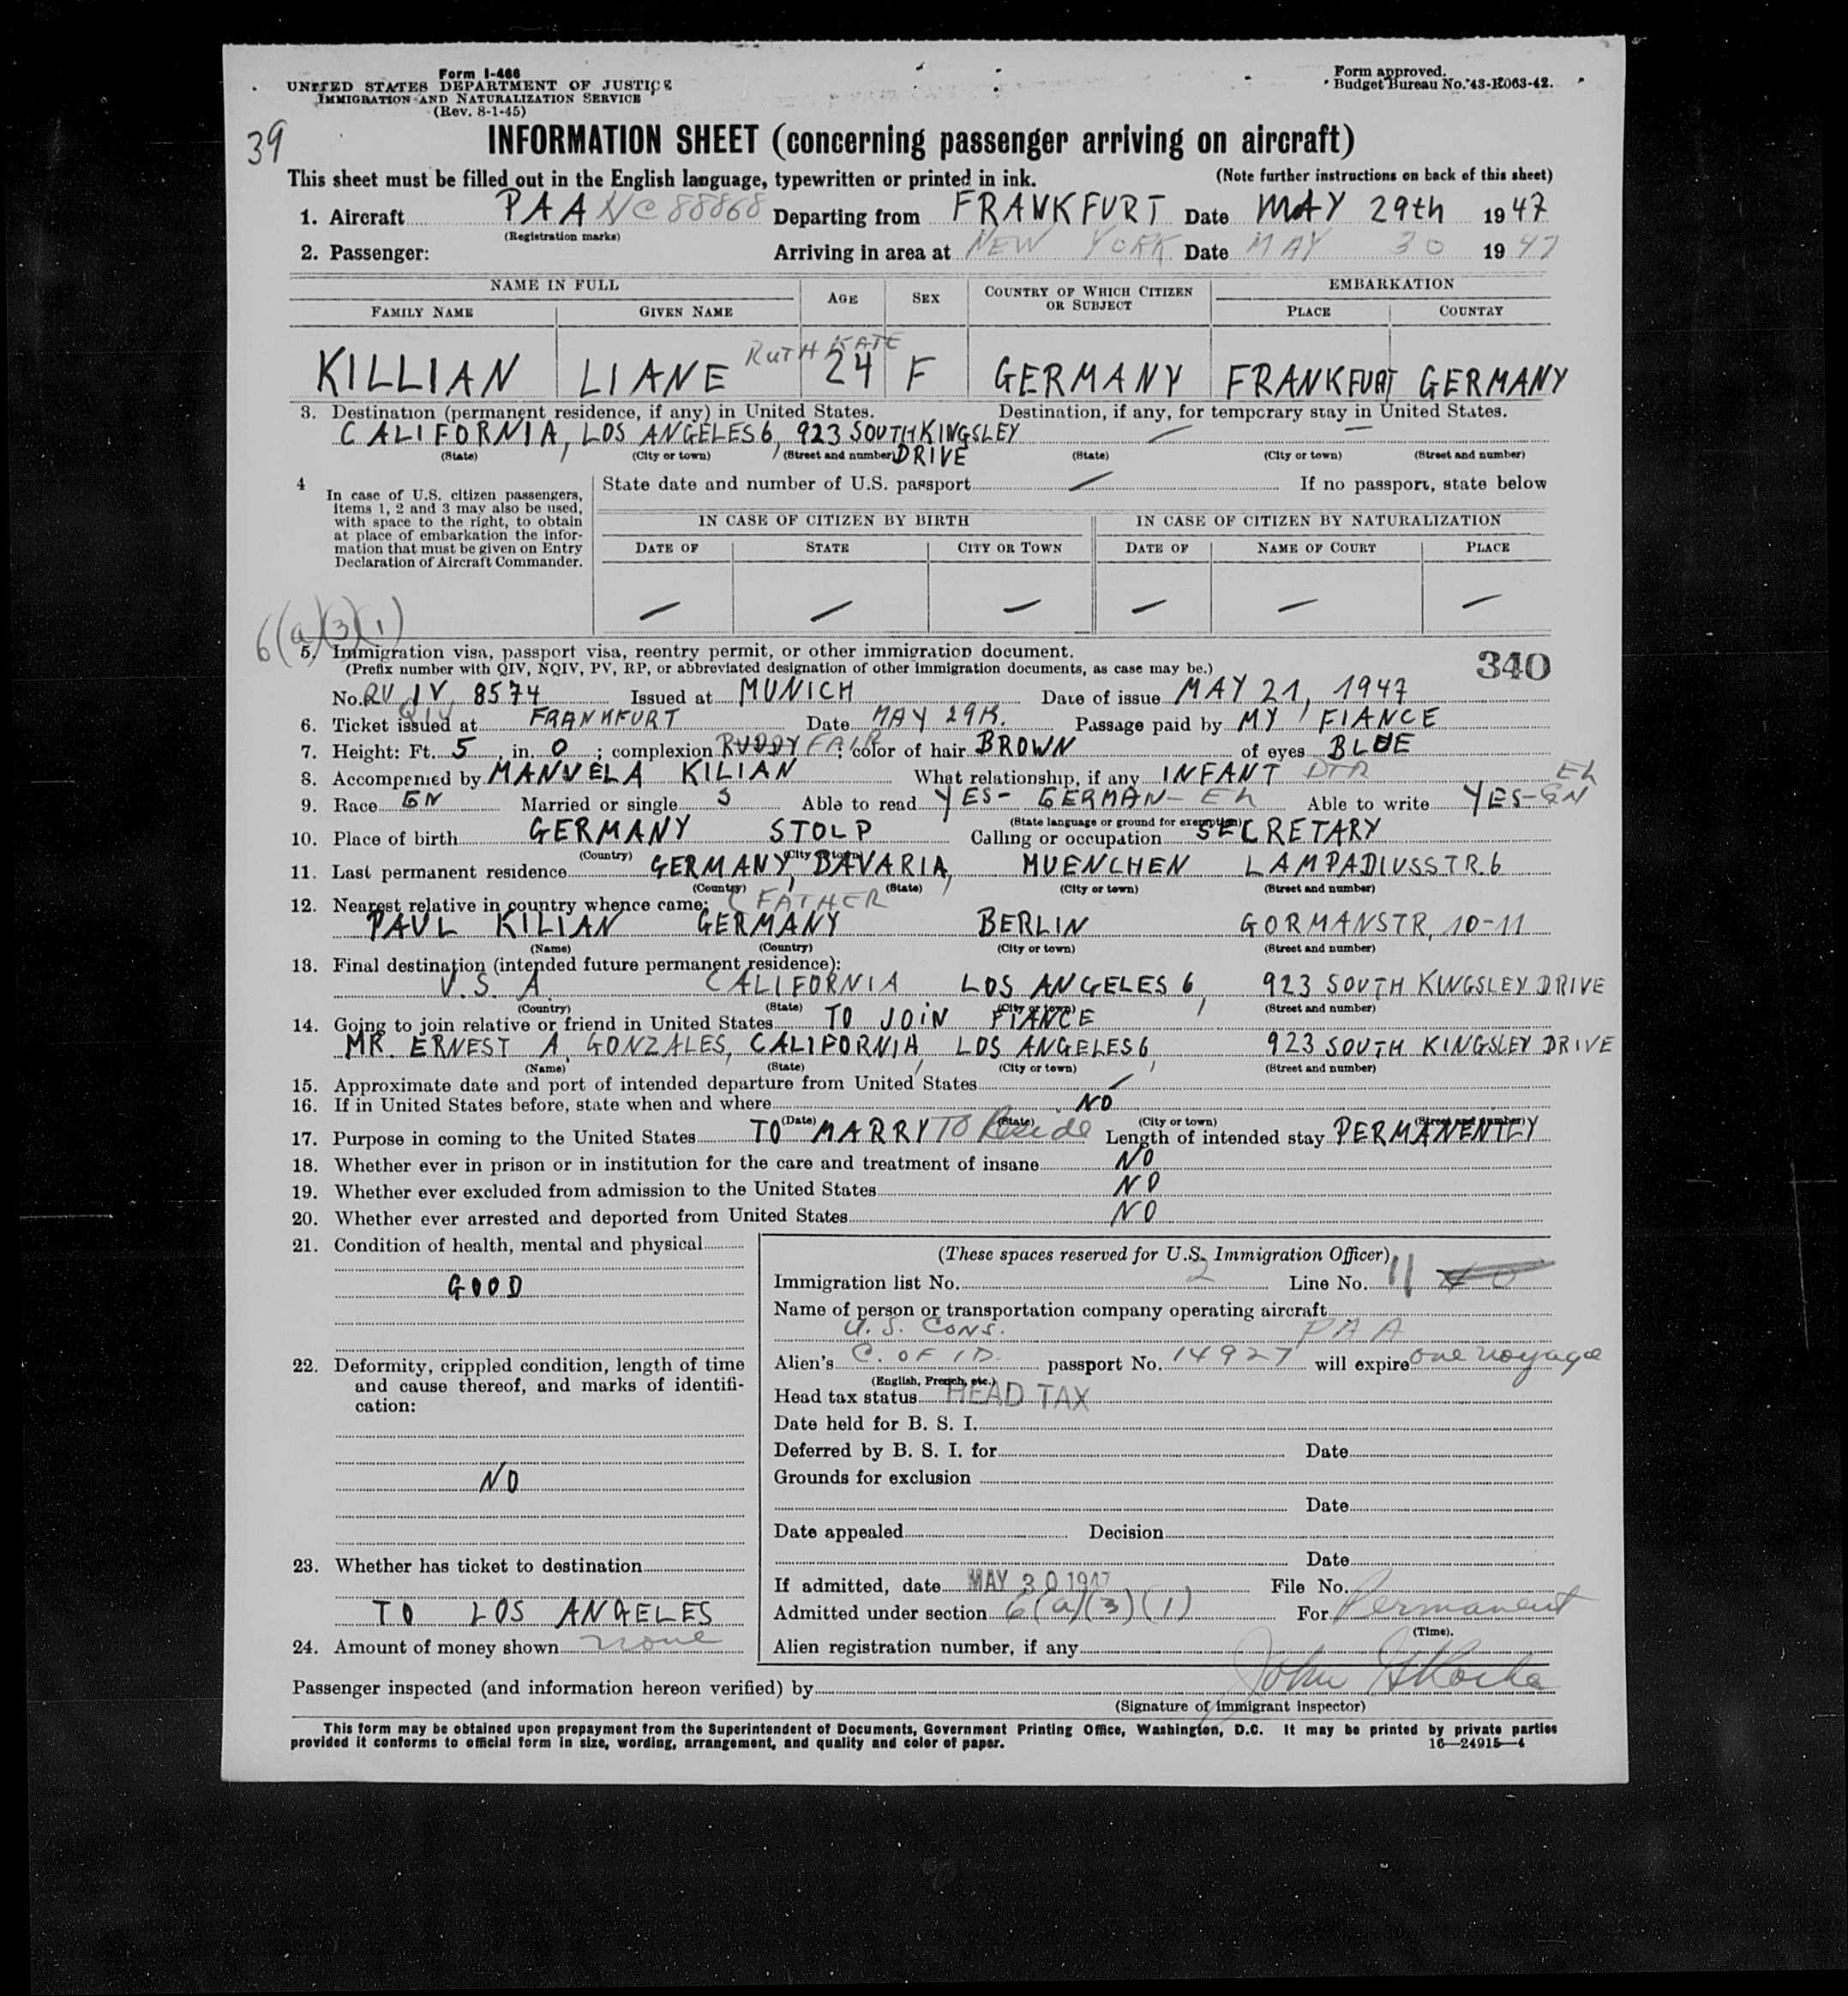 Form I-466
UNITED STATES DEPARTMENT OF JUSTICE
IMMIGRATION AND NATURALIZATION SERVICE
(Rev. 8-1-45)
Form approved.
Budget Bureau No. 43-R063-42.
39
INFORMATION SHEET (concerning passenger arriving on aircraft)
This sheet must be filled out in the English language, typewritten or printed in ink. (Note further instructions on back of this sheet)
1. Aircraft PAA NC 88868 Departing from FRANKFURT Date MAY 29th 1947
(Registration marks)
2. Passenger: Arriving in area at NEW YORK Date MAY 30 1947
NAME IN FULL AGE SEX COUNTRY OF WHICH CITIZEN OR SUBJECT EMBARKATION
FAMILY NAME GIVEN NAME PLACE COUNTRY
RUTH KATE
KILLIAN LIANE 24 F GERMANY FRANKFURT GERMANY
3. Destination (permanent residence, if any) in United States. Destination, if any, for temporary stay in United States.
CALIFORNIA, LOS ANGELES 6, 923 SOUTH KINGSLEY
DRIVE
(State) (City or town) (Street and number) (State) (City or town) (Street and number)
4 In case of U.S. citizen passengers, items 1, 2 and 3 may also be used, with space to the right, to obtain at place of embarkation the information that must be given on Entry Declaration of Aircraft Commander.
State date and number of U.S. passport If no passport, state below
IN CASE OF CITIZEN BY BIRTH IN CASE OF CITIZEN BY NATURALIZATION
DATE OF STATE CITY OR TOWN DATE OF NAME OF COURT PLACE
6(a)(3)(1)
5. Immigration visa, passport visa, reentry permit, or other immigration document.
(Prefix number with QIV, NQIV, PV, RP, or abbreviated designation of other immigration documents, as case may be.)
340
No. RV IV 8574 Issued at MUNICH Date of issue MAY 21, 1947
QIV
6. Ticket issued at FRANKFURT Date MAY 29 Passage paid by MY FIANCE
7. Height: Ft. 5 in. 0; complexion RUDDY FAIR; color of hair BROWN of eyes BLUE
8. Accompenied by MANUELA KILIAN What relationship, if any INFANT DTR
9. Race GN Married or single S Able to read YES- GERMAN- Eh Able to write YES-GN Eh
(State language or ground for exemption)
10. Place of birth GERMANY STOLP Calling or occupation SECRETARY
(Country) (City or town)
11. Last permanent residence GERMANY, BAVARIA, MUENCHEN LAMPADIUSSTR. 6
(Country) (State) (City or town) (Street and number)
12. Nearest relative in country whence came: (FATHER
PAUL KILIAN GERMANY BERLIN GORMANSTR, 10-11
(Name) (Country) (City or town) (Street and number)
13. Final destination (intended future permanent residence):
U.S. A. CALIFORNIA LOS ANGELES 6, 923 SOUTH KINGSLEY DRIVE
(Country) (State) (City or town) (Street and number)
14. Going to join relative or friend in United States TO JOIN FIANCE
MR. ERNEST A. GONZALES, CALIFORNIA, LOS ANGELES 6, 923 SOUTH KINGSLEY DRIVE
(Name) (State) (City or town) (Street and number)
15. Approximate date and port of intended departure from United States
16. If in United States before, state when and where NO
(Date) (State) (City or town) (Street and number)
17. Purpose in coming to the United States TO MARRY TO Reside Length of intended stay PERMANENTLY
18. Whether ever in prison or in institution for the care and treatment of insane NO
19. Whether ever excluded from admission to the United States NO
20. Whether ever arrested and deported from United States NO
21. Condition of health, mental and physical
GOOD
22. Deformity, crippled condition, length of time and cause thereof, and marks of identification:
NO
23. Whether has ticket to destination
TO LOS ANGELES
24. Amount of money shown none
(These spaces reserved for U.S. Immigration Officer)
Immigration list No. 2 Line No. 11
Name of person or transportation company operating aircraft
U.S. CONS. PAA
Alien's C. OF ID. passport No. 14927 will expire one voyage
(English, French, etc.)
Head tax status HEAD TAX
Date held for B. S. I.
Deferred by B. S. I. for Date
Grounds for exclusion
Date
Date appealed Decision
Date
If admitted, date MAY 30 1947 File No.
Admitted under section 6(a)(3)(1) For Permanent
(Time).
Alien registration number, if any
Passenger inspected (and information hereon verified) by John
(Signature of immigrant inspector)
This form may be obtained upon prepayment from the Superintendent of Documents, Government Printing Office, Washington, D.C. It may be printed by private parties
provided it conforms to official form in size, wording, arrangement, and quality and color of paper. 16—24915-4